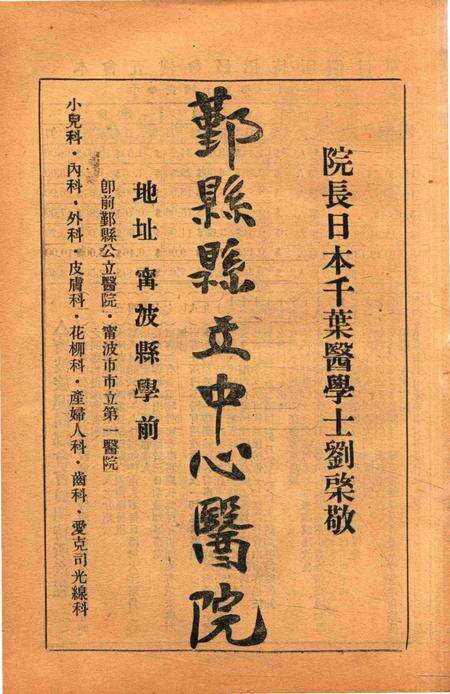 院長日本千葉醫學士劉棨敬
鄞縣縣立中心醫院
地址 甯波縣學前
卽前鄞縣公立醫院·甯波市市立第一醫院
小兒科·內科·外科·皮膚科·花柳科·產婦人科·齒科·愛克司光線科